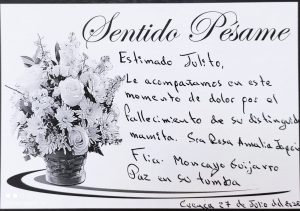 Sentido Pésame
Estimado Julito,
Le acompañamos en este
momento de dolor por el
fallecimiento de su distinguida
mamita. Sra Rosa Amalia
Flia: Moncayo Guijarro
Paz en su tumba
Cuenca 27 de Julio del